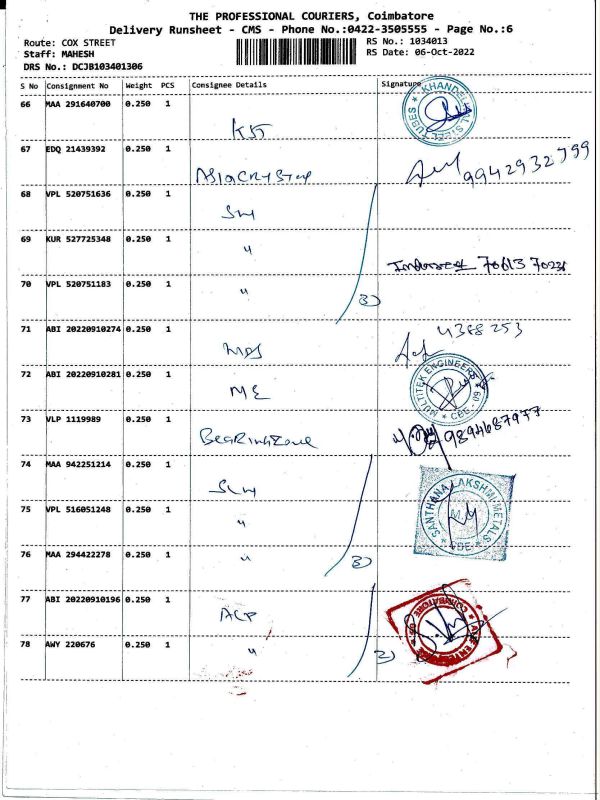 THE PROFESSIONAL COURIERS, Coimbatore
Delivery Runsheet - CMS - Phone No.:0422-3505555 - Page No.:6
Route: COX STREET
Staff: MAHESH
DRS No.: DCJB103401306
RS No.: 1034013
RS Date: 06-Oct-2022
S No Consignment No Weight PCS Consignee Details Signature
66 MAA 291640700 0.250 1
KHANDELWAL TUBES
67 EDQ 21439392 0.250 1
ASIACRYSTAL 9942932799
68 VPL 520751636 0.250 1
69 KUR 527725348 0.250 1
"
70 VPL 520751183 0.250 1
"
3
71 ABI 20220910274 0.250 1
MDS 4388253
72 ABI 20220910281 0.250 1
ME
MULTITEK ENGINEERS CBE - 09
73 VLP 1119989 0.250 1
BEARINGZONE 9894687977
74 MAA 942251214 0.250 1
SLM
SANTHANALAKSHMI METALS CBE
75 VPL 516051248 0.250 1
"
76 MAA 294422278 0.250 1
"
3
77 ABI 20220910196 0.250 1
ACP
COIMBATORE
78 AWY 220676 0.250 1
"
2